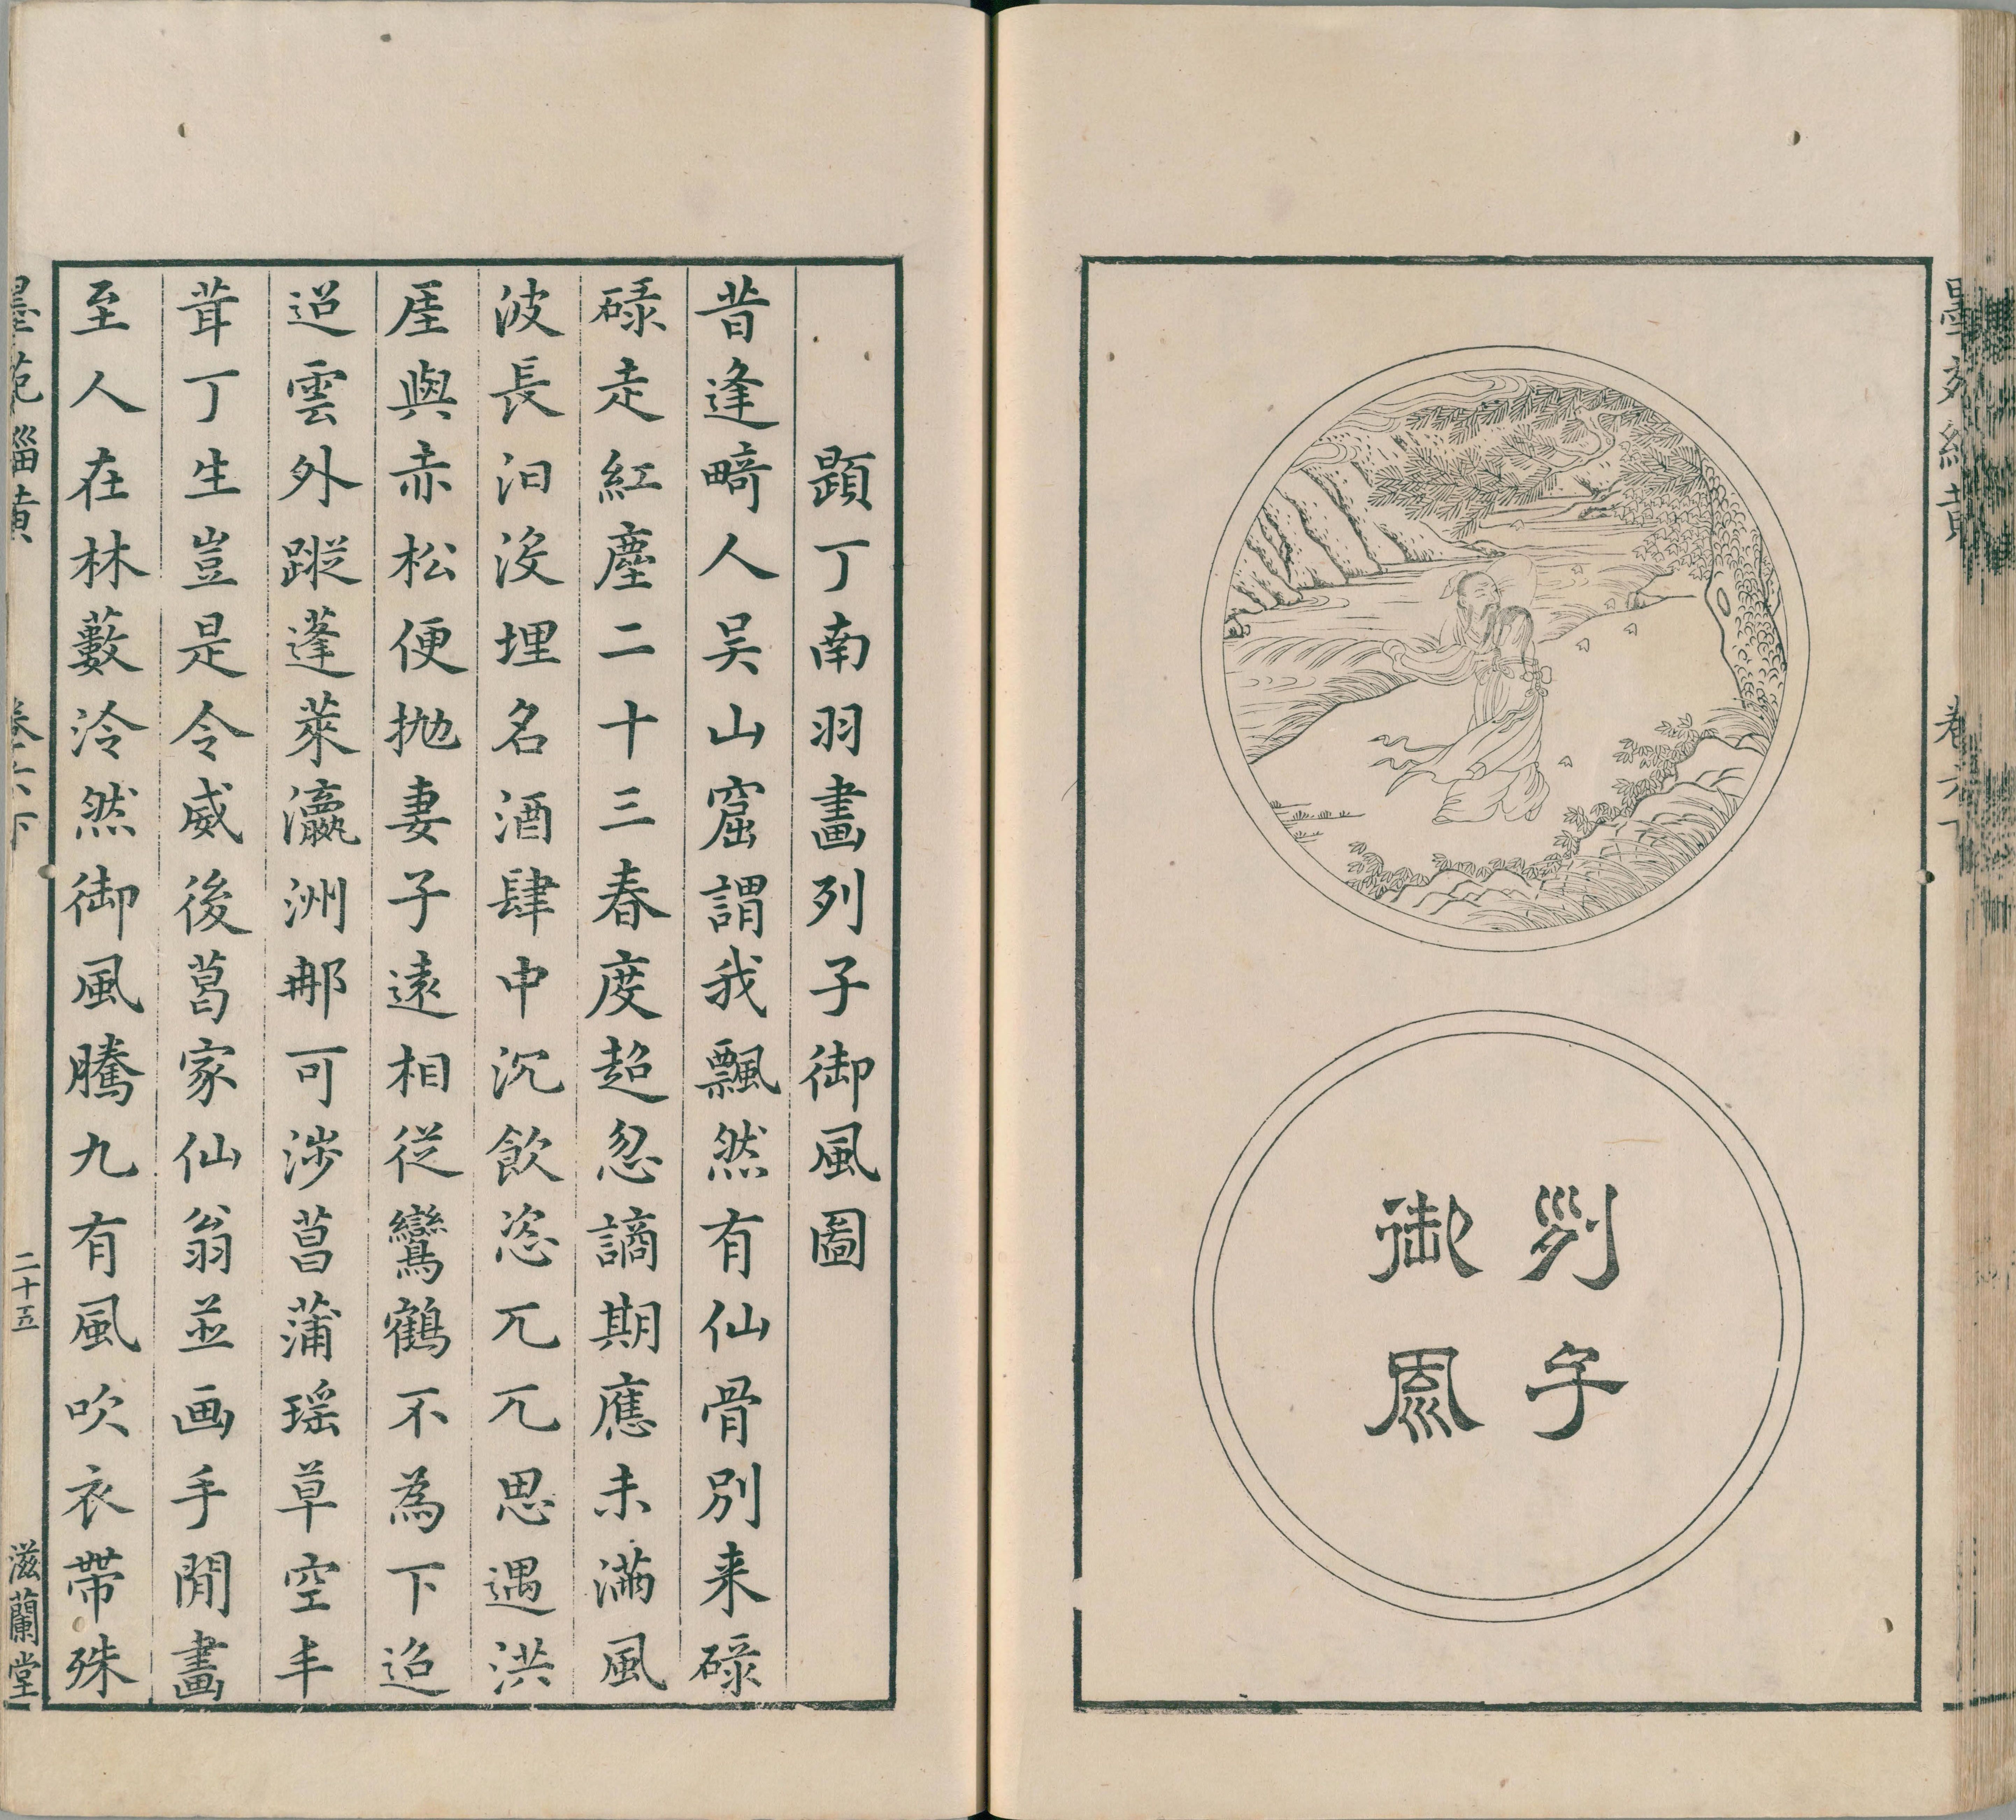 列子
御風
墨苑緇黄
卷六下
題丁南羽畫列子御風圖
昔逢畸人吴山窟謂我飄然有仙骨別来碌
碌走紅塵二十三春度超忽謫期應未滿風
波長汨没埋名酒肆中沉飲恣兀兀思遇洪
厓與赤松便抛妻子遠相從鸞鶴不為下迢
迢雲外蹤蓬萊瀛洲那可涉菖蒲瑶草空丰
茸丁生豈是令威後菖家仙翁並画手閒畫
至人在林藪泠然御風騰九有風吹衣帶殊
墨苑緇黄
卷六下
二十五
滋蘭堂